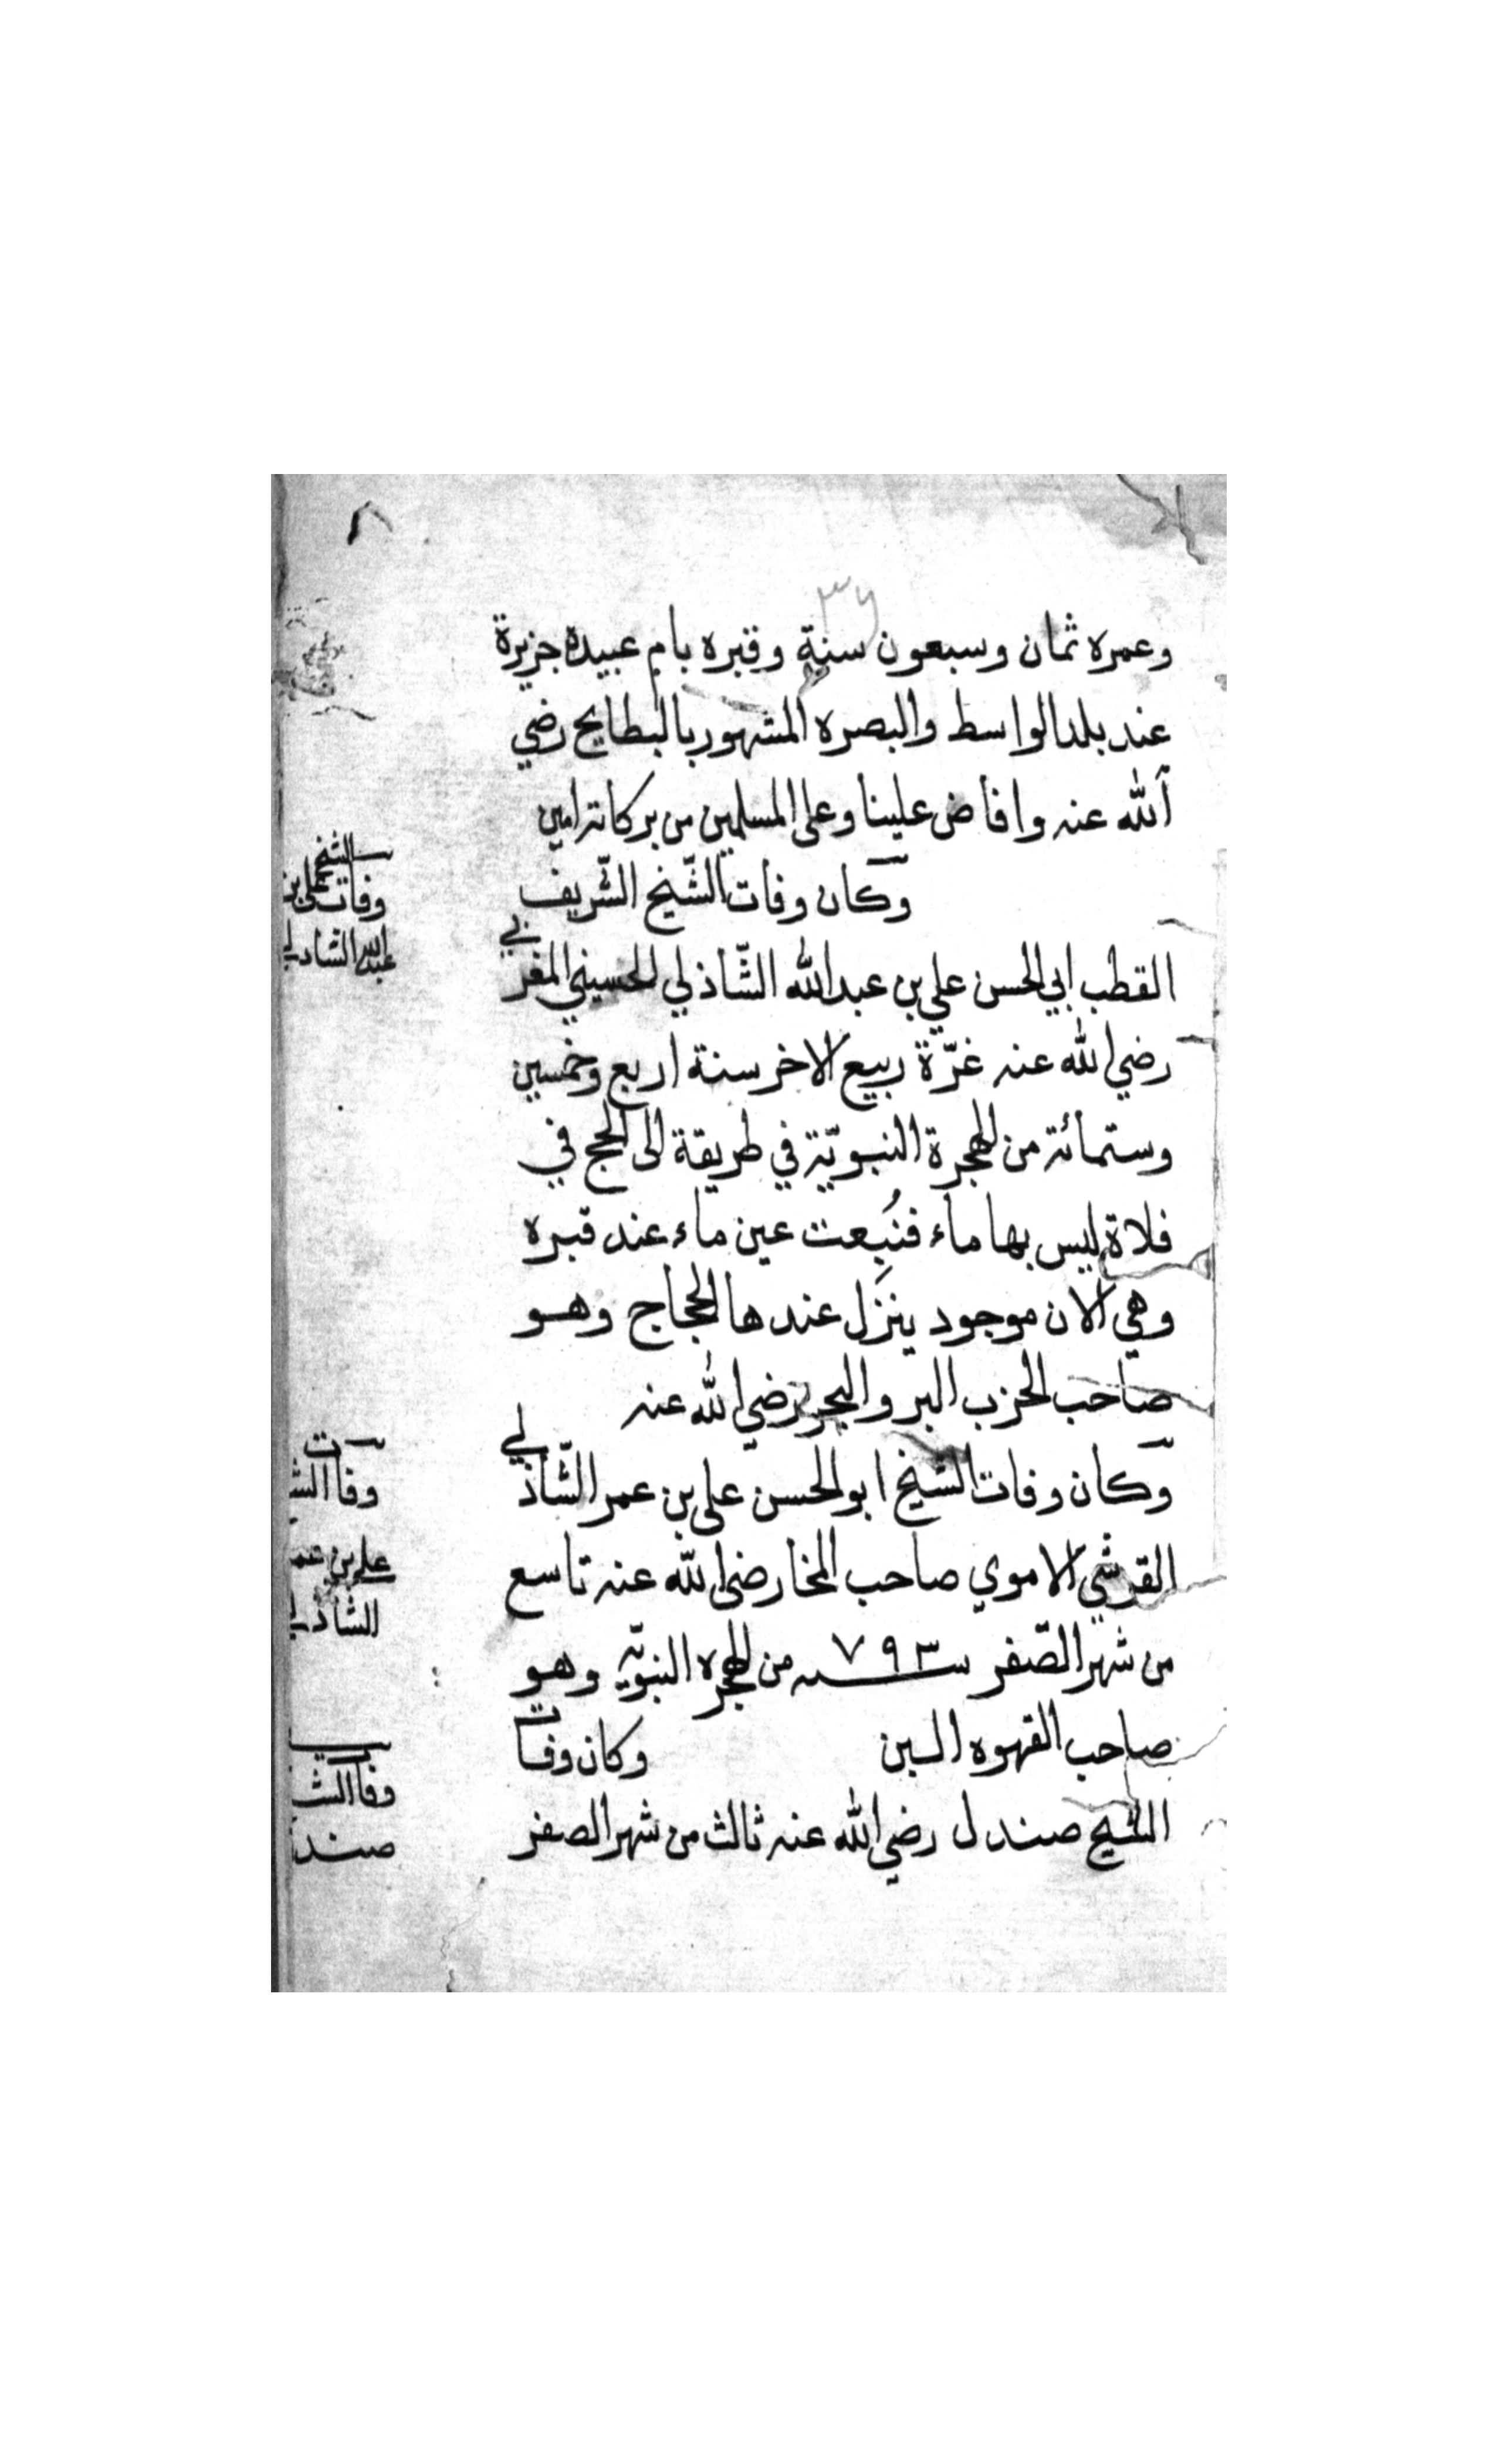 ٣٦
وعمره ثمان وسبعون سنة وقبره بام عبيدة جزيرة
عند بلد الواسط والبصره المشهور بالبطايح رضي
الله عنه وافاض علينا وعلى المسلمين من بركاته امين
وكان وفات الشيخ الشريف
القطب ابي الحسن علي بن عبد الله الشاذلي الحسيني المغربي
رضي الله عنه غرّة ربيع الاخر سنة اربع وخمسين
وستمائة من الهجرة النبويّة في طريقة الى الحج في
فلاة ليس بها ماء فنبعت عين ماء عند قبره
وهي الان موجود ينزل عندها الحجاج وهو
صاحب الحزب البر والبحر رضي الله عنه
وكان وفات الشيخ ابو الحسن علي بن عمر الشّاذلي
القرشي الاموي صاحب المخا رضي الله عنه تاسع
من شهر الصّفر سنه ٧٩٣ من الهجره النبويّه وهو
صاحب القهوه وكان وفات
الشيخ صندل رضي الله عنه ثالث من شهر الصفر
وفات الشيخ علي بن
عبد الله الشاذلي
وفات الش
علي بن عم
الشاذلي
وفات الش
صند